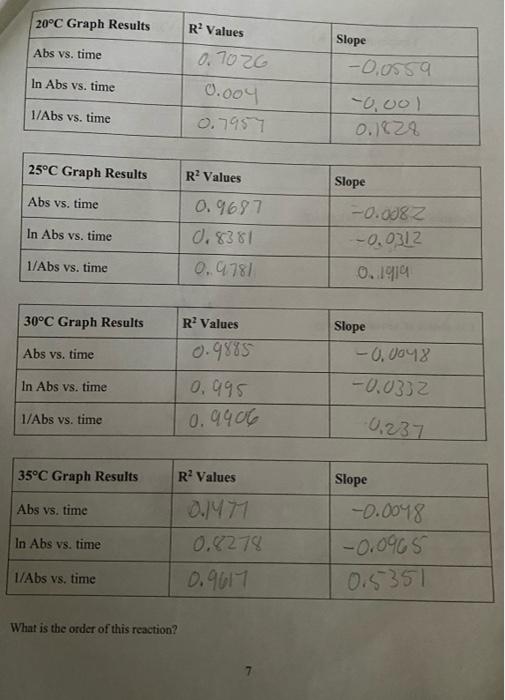 20°C Graph Results R² Values Slope
Abs vs. time 0.7026 -0.0559
ln Abs vs. time 0.004 -0.001
1/Abs vs. time 0.7957 0.1828
25°C Graph Results R² Values Slope
Abs vs. time 0.9687 -0.0082
ln Abs vs. time 0.8381 -0.0312
1/Abs vs. time 0.9781 0.1919
30°C Graph Results R² Values Slope
Abs vs. time 0.9885 -0.0048
ln Abs vs. time 0.995 -0.0332
1/Abs vs. time 0.9906 0.237
35°C Graph Results R² Values Slope
Abs vs. time 0.1477 -0.0048
ln Abs vs. time 0.8278 -0.0965
1/Abs vs. time 0.9617 0.5351
What is the order of this reaction?
7